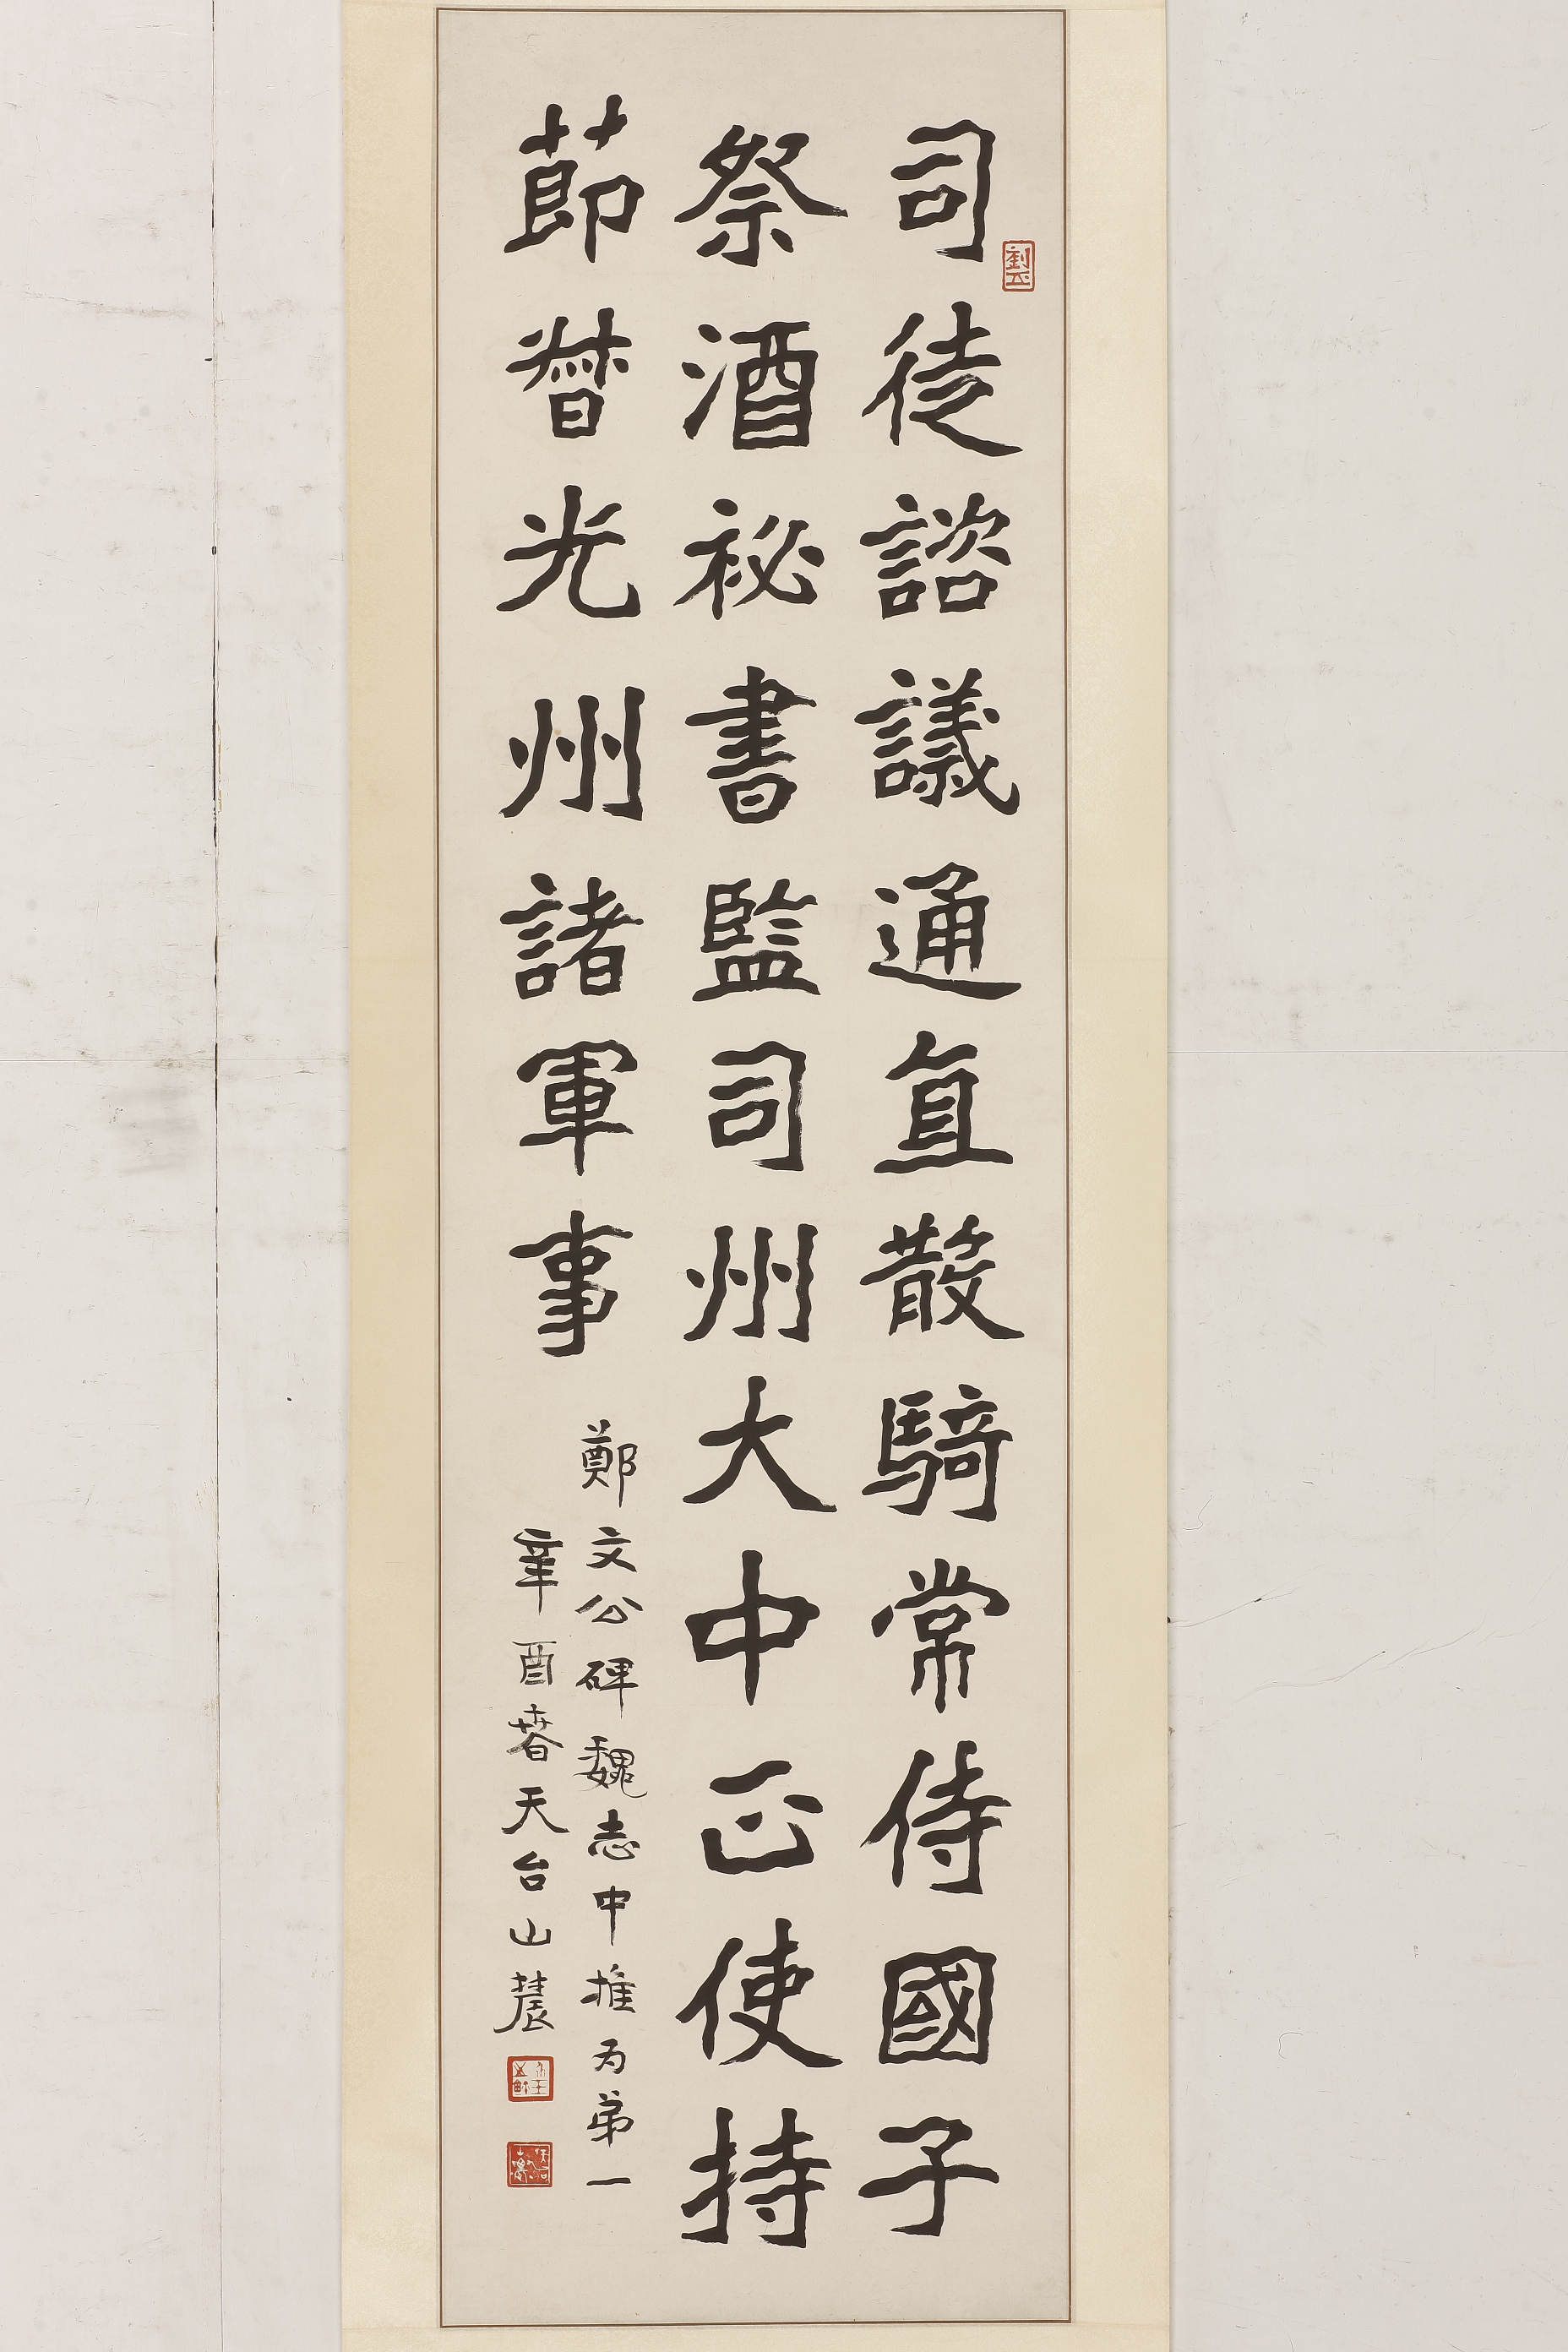 司徒諮議通直散騎常侍國子
祭酒祕書監司州大中正使持
節督光州諸軍事
鄭文公碑魏志中推為弟一
辛酉春天台山農